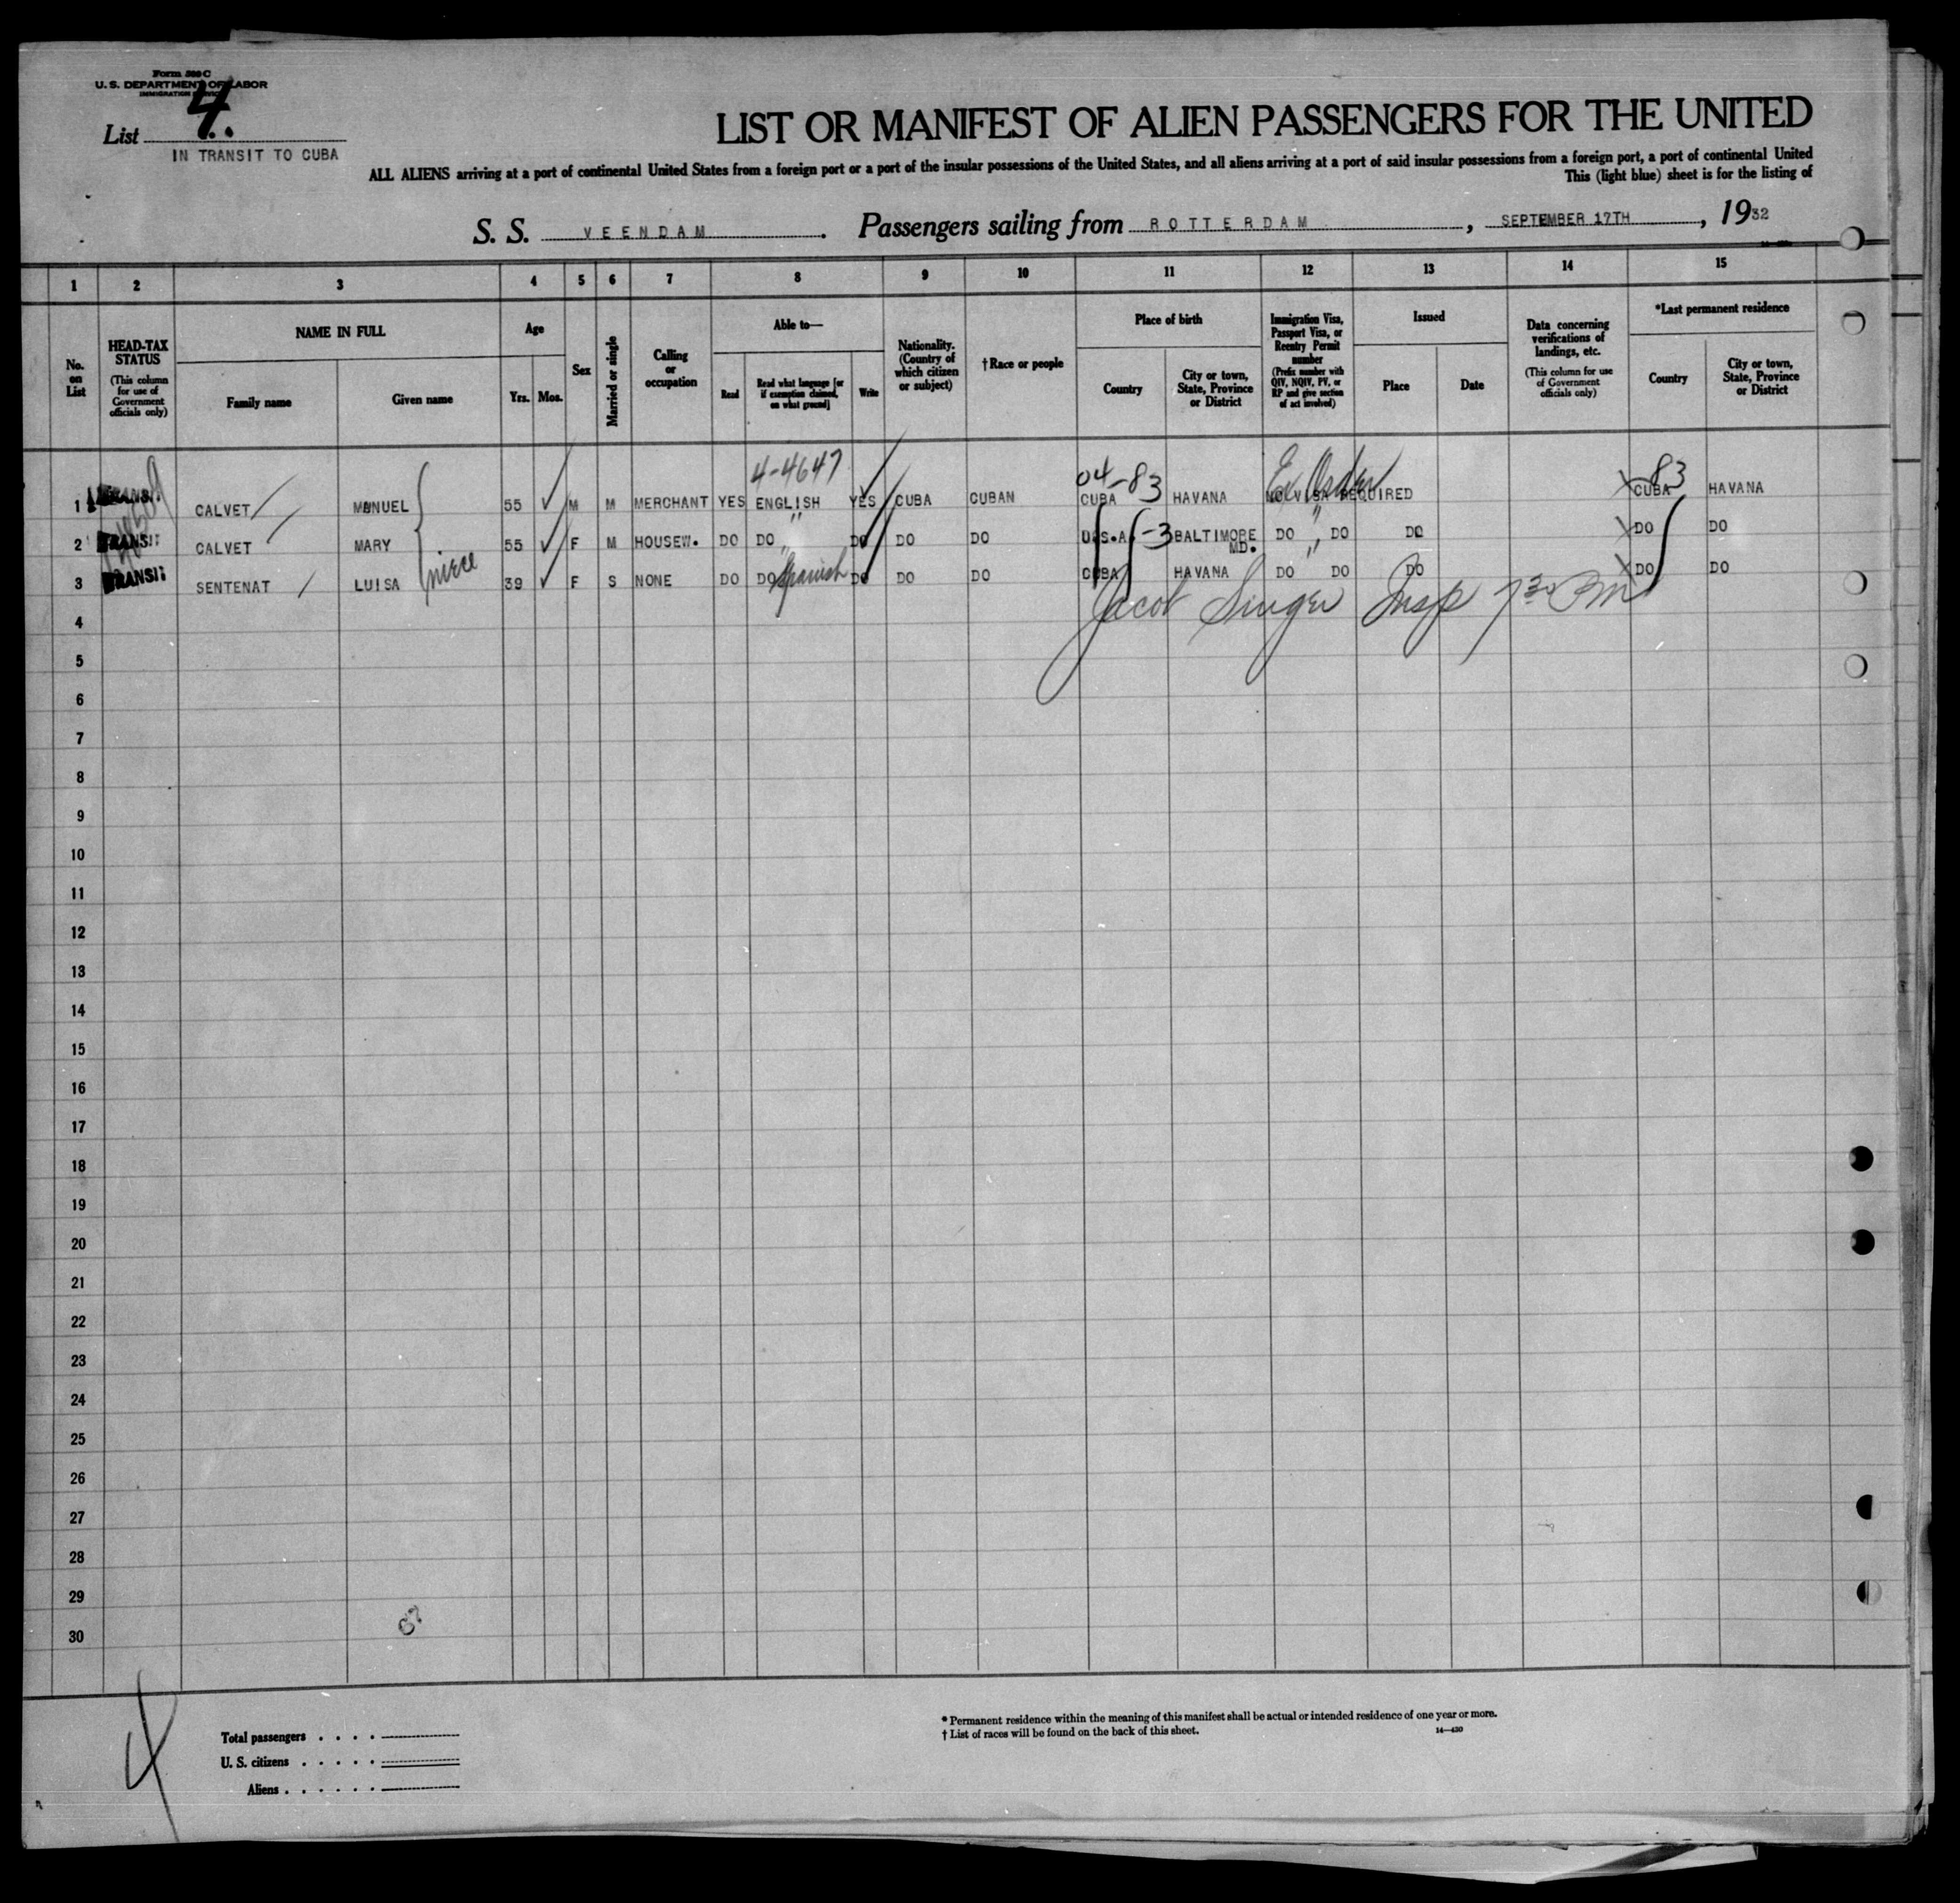 Form 500 C
U. S. DEPARTMENT OF LABOR
IMMIGRATION SERVICE
List 4.
IN TRANSIT TO CUBA
LIST OR MANIFEST OF ALIEN PASSENGERS FOR THE UNITED
ALL ALIENS arriving at a port of continental United States from a foreign port or a port of the insular possessions of the United States, and all aliens arriving at a port of said insular possessions from a foreign port, a port of continental United
This (light blue) sheet is for the listing of
S. S. VEENDAM. Passengers sailing from ROTTERDAM, SEPTEMBER 17TH, 1932
1 2 3 4 5 6 7 8 9 10 11 12 13 14 15
No. on List
HEAD-TAX STATUS (This column for use of Government officials only)
NAME IN FULL
Family name
Given name
Age
Yrs. Mos.
Sex
Married or single
Calling or occupation
Able to—
Read
Read what language [or if exemption claimed, on what ground]
Write
Nationality. (Country of which citizen or subject)
†Race or people
Place of birth
Country
City or town, State, Province or District
Immigration Visa, Passport Visa, or Reentry Permit number (Prefix number with QIV, NQIV, PV, or RP and give section of act involved)
Issued
Place
Date
Data concerning verifications of landings, etc. (This column for use of Government officials only)
*Last permanent residence
Country
City or town, State, Province or District
4-4647 04-83 Ex Order 83
1 TRANSIT CALVET MANUEL 55 M M MERCHANT YES ENGLISH YES CUBA CUBAN CUBA HAVANA NO VISA REQUIRED CUBA HAVANA
2 TRANSIT CALVET MARY 55 F M HOUSEW. DO DO " DO DO DO U.S.A. -3 BALTIMORE MD. DO " DO DO DO DO
3 TRANSIT SENTENAT LUISA niece 39 F S NONE DO DO Spanish DO DO DO CUBA HAVANA DO " DO DO DO DO
Jacob Singer Insp 7 30 PM
4
5
6
7
8
9
10
11
12
13
14
15
16
17
18
19
20
21
22
23
24
25
26
27
28
29
30
4
Total passengers
U. S. citizens
Aliens
* Permanent residence within the meaning of this manifest shall be actual or intended residence of one year or more.
† List of races will be found on the back of this sheet.
14—430